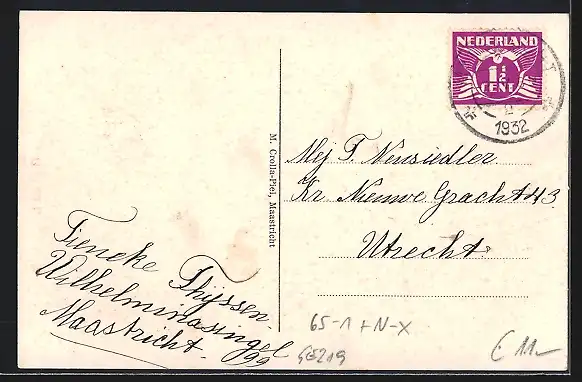 NEDERLAND
1½
CENT
1932
M. Crolla-Piel, Maastricht
Mej T. Neusiedler
Kr Nieuwe Gracht 43
Utrecht
Tieneke Thyssen.
Wilhelminasingel
99
Maastricht.
65-1 + N-X
€ 11,-